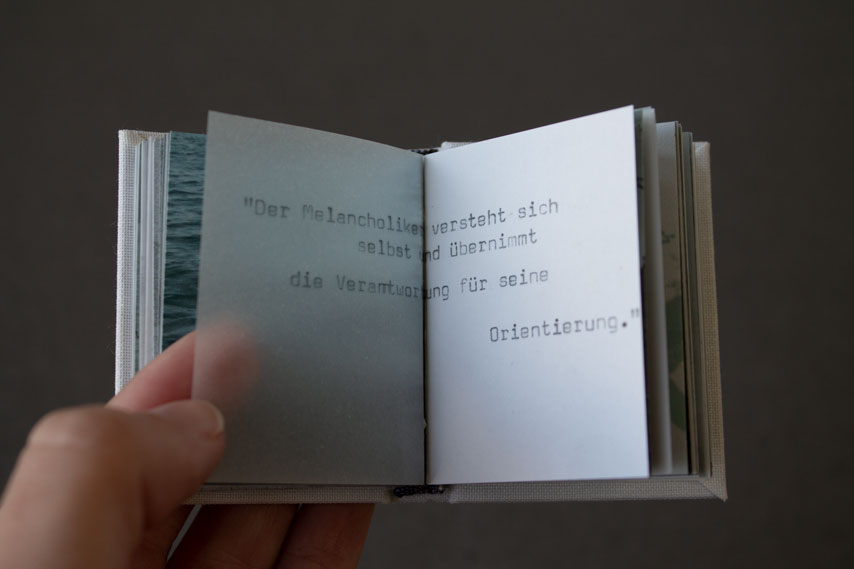 "Der Melancholiker versteht sich
selbst und übernimmt
die Verantwortung für seine
Orientierung."